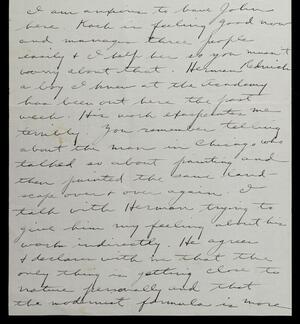 I am anxious to have John
here. Rach is feeling good now
and manages three people
easily & I help her so you mustn't
worry about that. Herman
a boy I knew at the Academy
has been out here the past
week. His work exasperates me
terribly. You remember telling
about the man in Chicago who
talked so about painting and
then painted the same land-
scape over & over again. I
talk with Herman trying to
give him my feeling about his
work indirectly. He agrees
& declares with me that the
only thing is getting close to
nature personally and that
the modernist formula is more